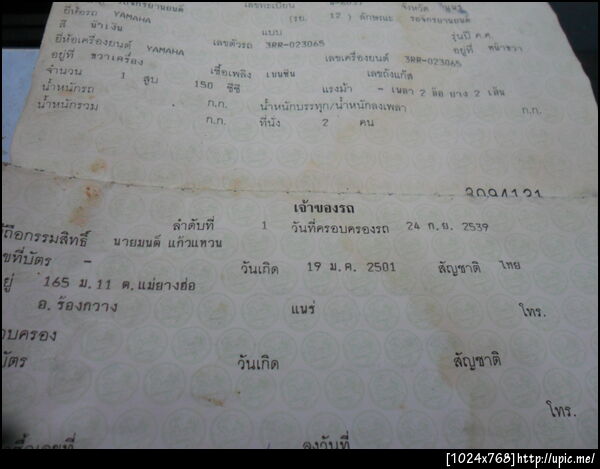 รถจักรยานยนต์ เลขทะเบียน จังหวัด
ยี่ห้อรถ YAMAHA (รย. 12 ) ลักษณะ รถจักรยานยนต์
สี น้ำเงิน แบบ รุ่นปี ค.ศ.
ยี่ห้อเครื่องยนต์ YAMAHA เลขตัวรถ 3RR-023065 อยู่ที่ หน้าขวา
อยู่ที่ ขวาเครื่อง เลขเครื่องยนต์ 3RR-023065
จำนวน 1 สูบ เชื้อเพลิง เบนซิน เลขถังแก๊ส
150 ซีซี แรงม้า - เพลา 2 ล้อ ยาง 2 เส้น
น้ำหนักรถ ก.ก. น้ำหนักบรรทุก/น้ำหนักลงเพลา ก.ก.
น้ำหนักรวม ก.ก. ที่นั่ง 2 คน
3094121
เจ้าของรถ
ลำดับที่ 1 วันที่ครอบครองรถ 24 ก.ย. 2539
ผู้ถือกรรมสิทธิ์ นายมนต์ แก้วแหวน
เลขที่บัตร - วันเกิด 19 ม.ค. 2501 สัญชาติ ไทย
อยู่ 165 ม.11 ต.แม่ยางฮ่อ
อ.ร้องกวาง แพร่ โทร.
ครอบครอง
บัตร วันเกิด สัญชาติ
โทร.
ลงวันที่
[1024x768]http://upic.me/